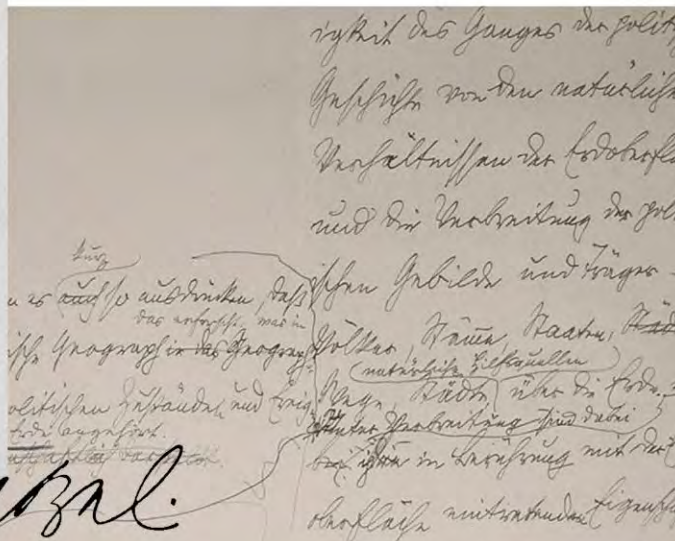 igkeit des Ganges der polit
Geschichte von den natürliche
Verhältnissen der Erdoberflä
und die Verbreitung der pol
ischen Gebilde und Träger
Völker, Stämme, Staaten, Städ
natürliche Hilfsquellen
Wege, Städte über die Erde
Verbreitung sind dabei
in Berührung mit der
oberfläche eintretenden Eigensch
kurz
n es auch so ausdrücken, daß
das erforscht, was in
ische Geographie das Geograph
olitischen Zustände und Ereig
Erde angehört.